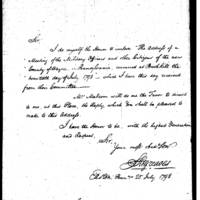 Sir,
I do myself the Honor to enclose The Address of a
Meeting of the Military Officers and other Citizens of the new
County of Wayne — Pennsylvania, convened at the
day of July 1798 — which I have this day received
from their Committee.
Mr. Malcom will do me the Favor to direct
to me, at this Place, the Reply, which You shall be pleased to
made to this Address.
I have the Honor to be, with the highest Veneration
and Respect,
Sir,
Your most Obt Servt
Sitgreaves
Easton Penn. 25 July 1798